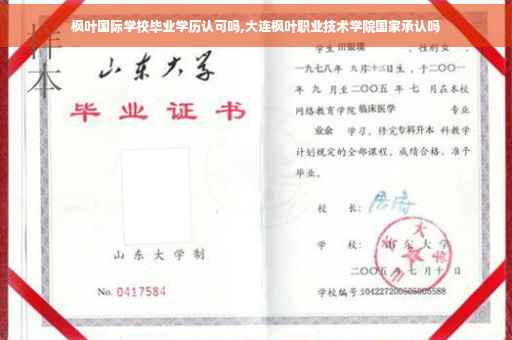 枫叶国际学校毕业学历认可吗,大连枫叶职业技术学院国家承认吗
样本
山东大学
毕业证书
山东大学制
No. 0417584
学生 性别女,
一九七八年 九月十三日生,于二〇〇一
年 九 月至二〇〇五 年 七 月在本校
网络教育学院 临床医学 专业
业余 学习,修完专科升本 科教学
计划规定的全部课程,成绩合格,准予
毕业。
校 长:
学 校: 山东大学
二〇〇五 年 七 月 十 日
学校编号:104227200505005588